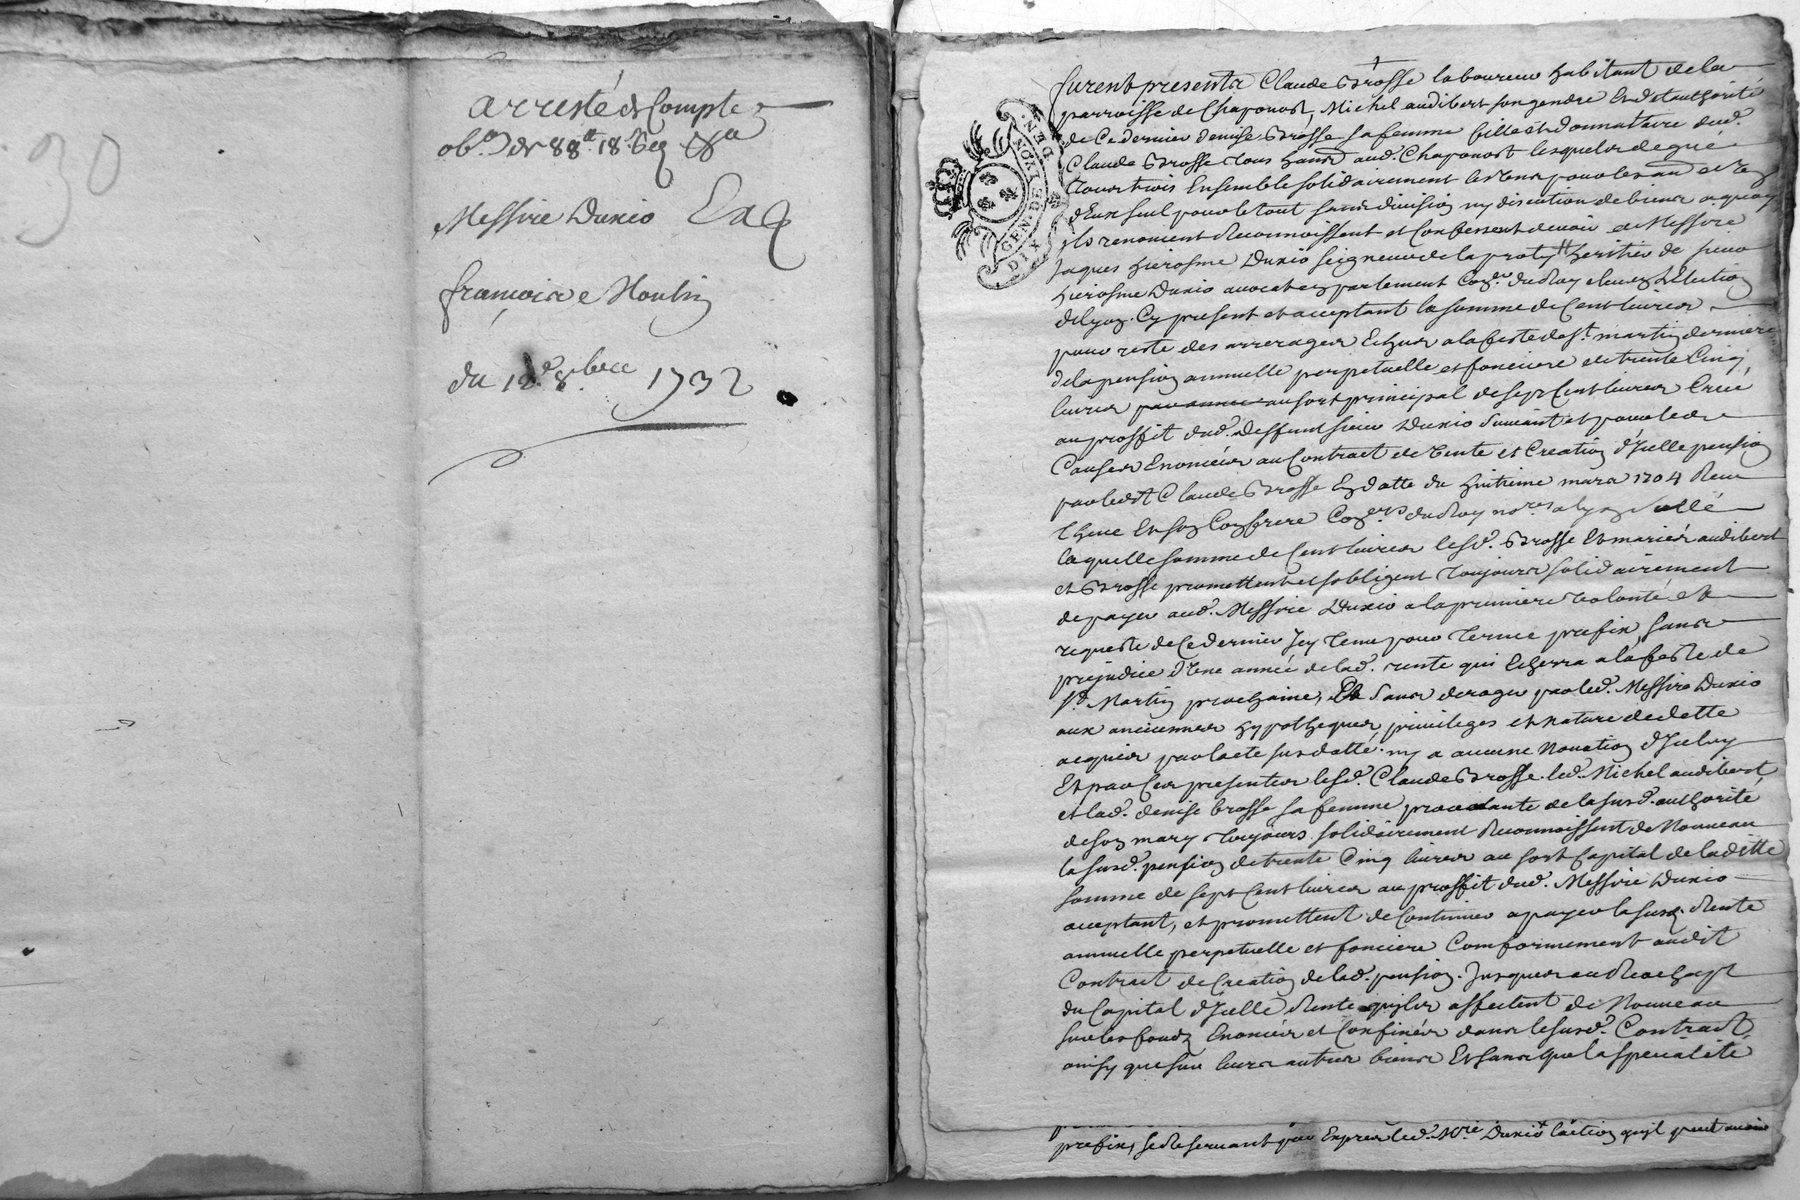 30
arresté de Compte
ob.on de 88tt 18. s
Messire Dunio
françoise Moulin
du 12.e 8bre 1732
GEN. DE LYON
DIX DEN.
furent presents Claude Brosse laboureur habitant de la
parroisse de Chaponost, Michel audibert son gendre Et d'authorité
de Ce dernier denise Brosse sa femme fille et donnataire dud.
Claude Brosse tous aud. Chaponost lesquels de gré
tous trois Ensemble solidairement
d'Eux seul pour le tout sans division ny discution de biens a quoy
ils renoncent Reconnoissent et Confessent devoir a Messire
Jaques hierosme Dunio seigneur de la heritier de sieur
hierosme Dunio avocat en parlement Con.er du Roy en l'Election
de lyon. Cy present et acceptant la somme de Cent livres
pour reste des arrerages Echus a la feste de st. martin derniere
de la pension annuelle perpetuelle et fonciere de trente Cinq
livres au sort principal de sept Cent livres Creé
au proffit dud. deffunt sieur Dunio suivant et pour les
Causes Enoncées au Contract de vente et Creation d'Icelle pension
par ledit Claude Brosse En datte du huitieme mars 1704 Receu
et son Confrere Con.ers du Roy no.res a lyon scellé
laquelle somme de Cent livres lesd. Brosse Et mariés audibert
et Brosse promettent et s'obligent toujours solidairement
de payer aud. Messire Dunio a la premiere volonté et
requeste de Ce dernier Icy tenu pour terme prefix, sans
prejudice d'Une année de lad. rente qui Echerra a la feste de
st. Martin prochaine, Et sans deroger par led. Messire Dunio
aux anciennes hypotheques, privileges et nature de dette
acquise par l'acte susdatté. ny a aucune Novation d'Iceluy
Et par Ces presentes lesd. Claude Brosse. led. Michel audibert
et lad. denise brosse sa femme procedante de la susd. authorité
de son mary toujours solidairement Reconnoissent de Nouveau
la susd. pension de trente Cinq livres au sort Capital de laditte
somme de sept Cent livres au proffit dud. Messire Dunio
acceptant, et promettent de Continuer a payer la susd. Rente
annuelle perpetuelle et fonciere Conformement audit
Contract de Creation de lad. pension. Jusques au Reachapt
du Capital d'Icelle Rente qu'ils affectent de Nouveau
sur les fonds Enoncés et Confinés dans le susd. Contract
ainsy que sur leurs autres biens Et sans que la specialité
prefix, se Reservant par Exprés led. M.re Dunio l'action qu'il peut avoir